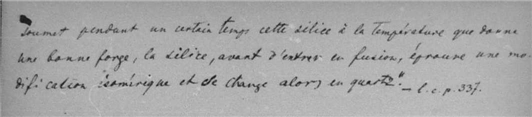 soumet pendant un certain temps cette silice à la température que donne
une bonne forge, la silice, avant d'entrer en fusion, éprouve une mo-
dification isomérique et se change alors en quartz." — l. c. p. 337.